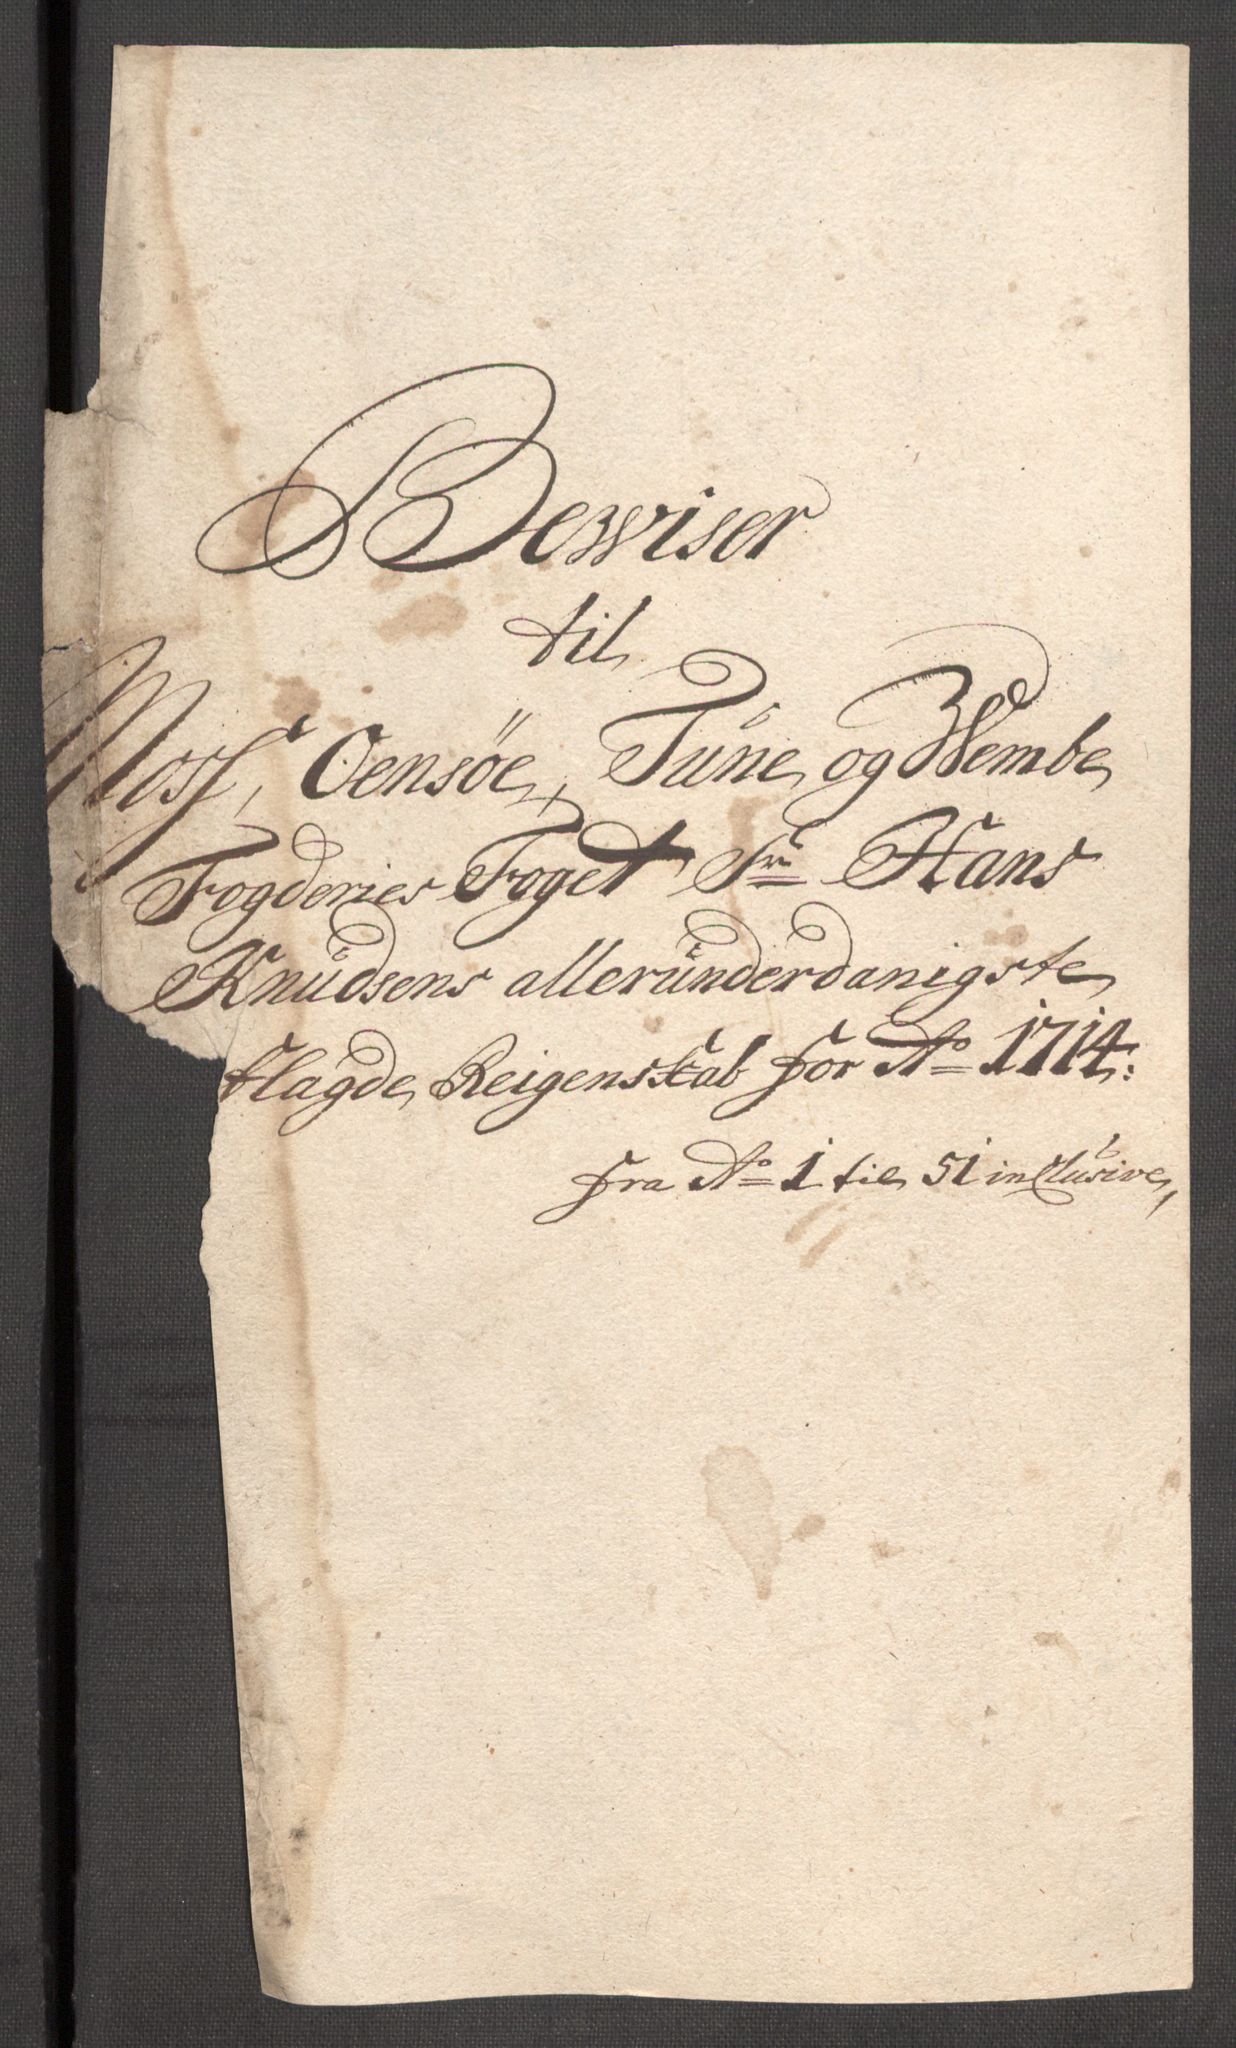 Bewiser
til
Moss, Oensöe, Tune og Wembe
Fogderies Foget Sr Hans
Knudsens allerunderdanigste
aflagde Reigenskab for Ao 1714:
fra No 1 til 51 inclusive,